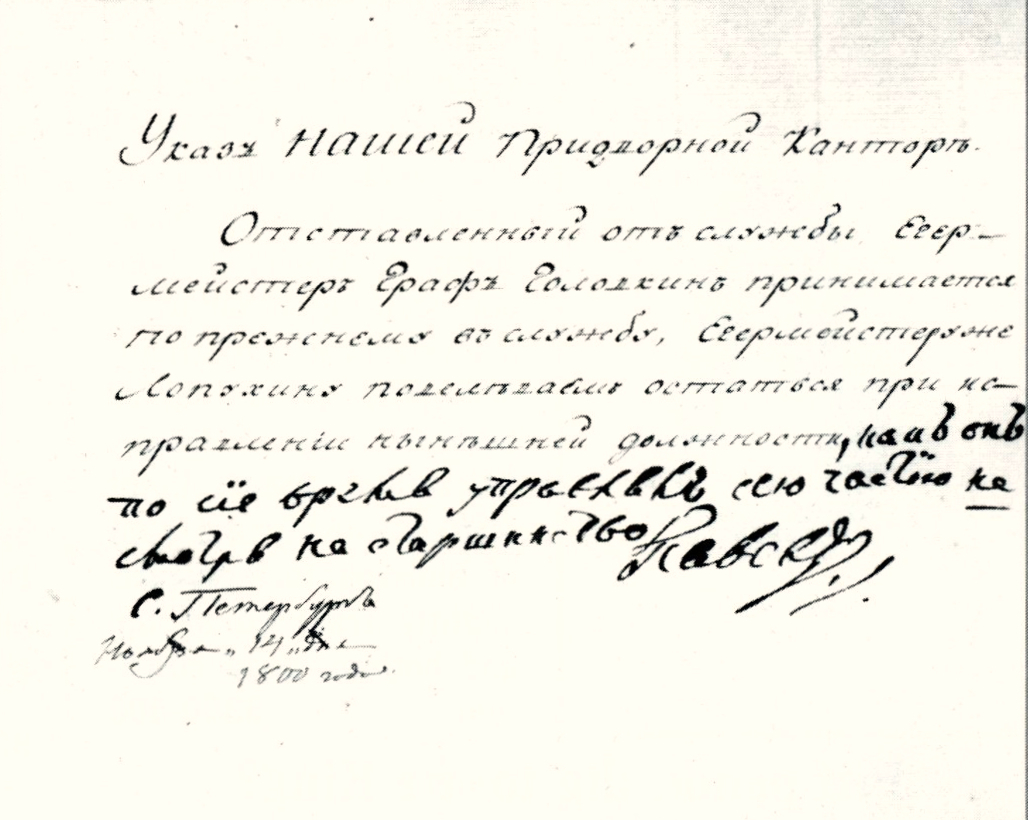 Указъ НАШЕЙ Придворной Канторѣ.
Отставленный отъ службы Егер-
мейстеръ Графъ Головкинъ принимается
по прежнему въ службу, Егермейстеру же
Лопухину повелѣваемъ остаться при ис-
правленіи нынѣшней должности, какъ онъ
по сіе время управлялъ сею частію не
смотря на старшинство Павелъ
С. Петербургъ
Ноября „14„ дня
1800 года.